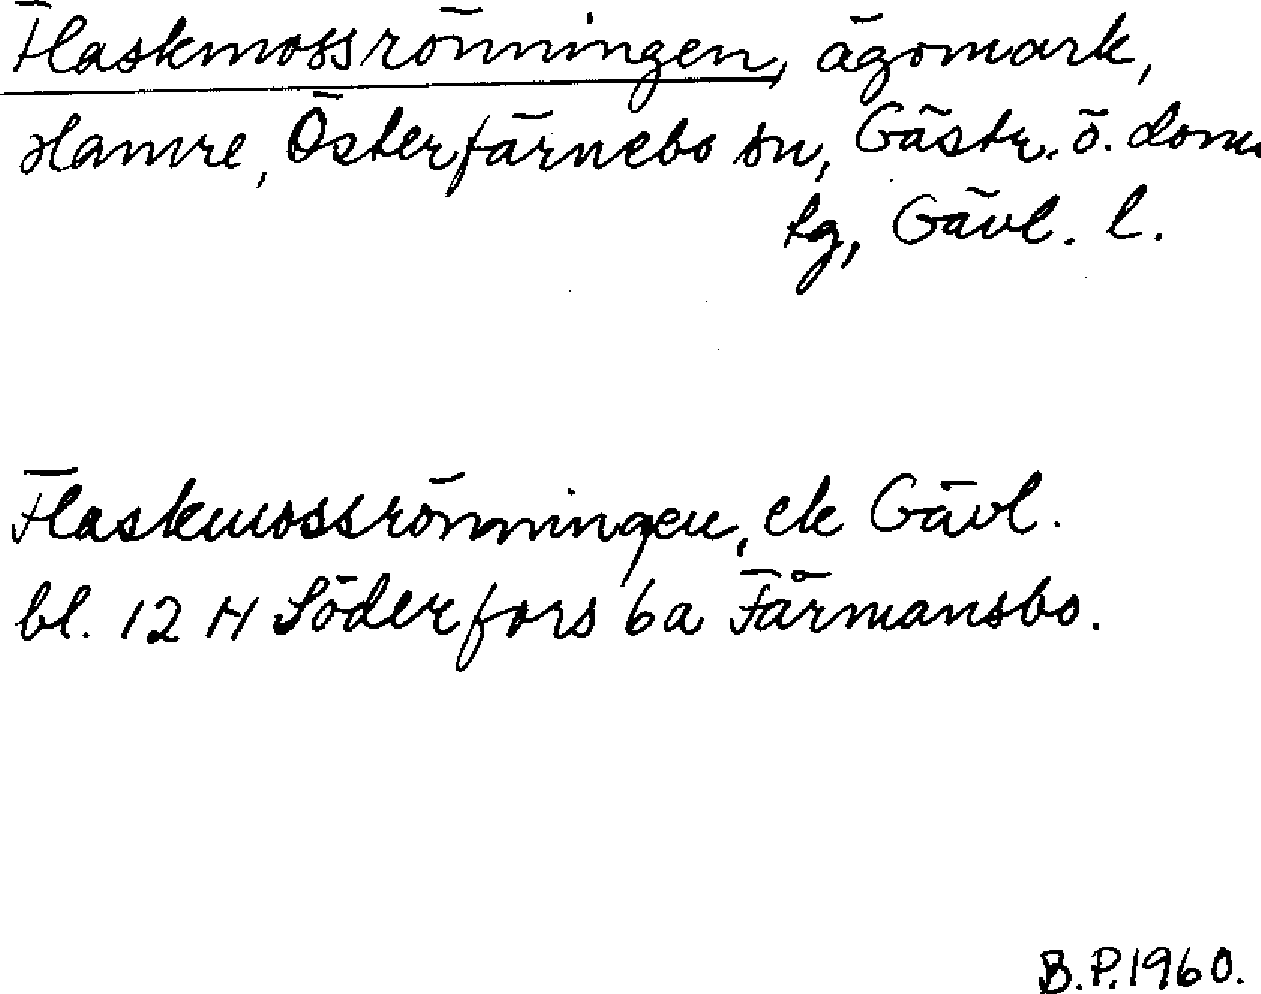 Flaskmossrönningen, ägomark,
Hamre, Österfärnebo sn, Gästr. ö. doms
lg, Gävl. l.
Flaskmossrönningen, ek Gävl.
bl. 12 H Söderfors 6a Färmansbo.
B.P. 1960.